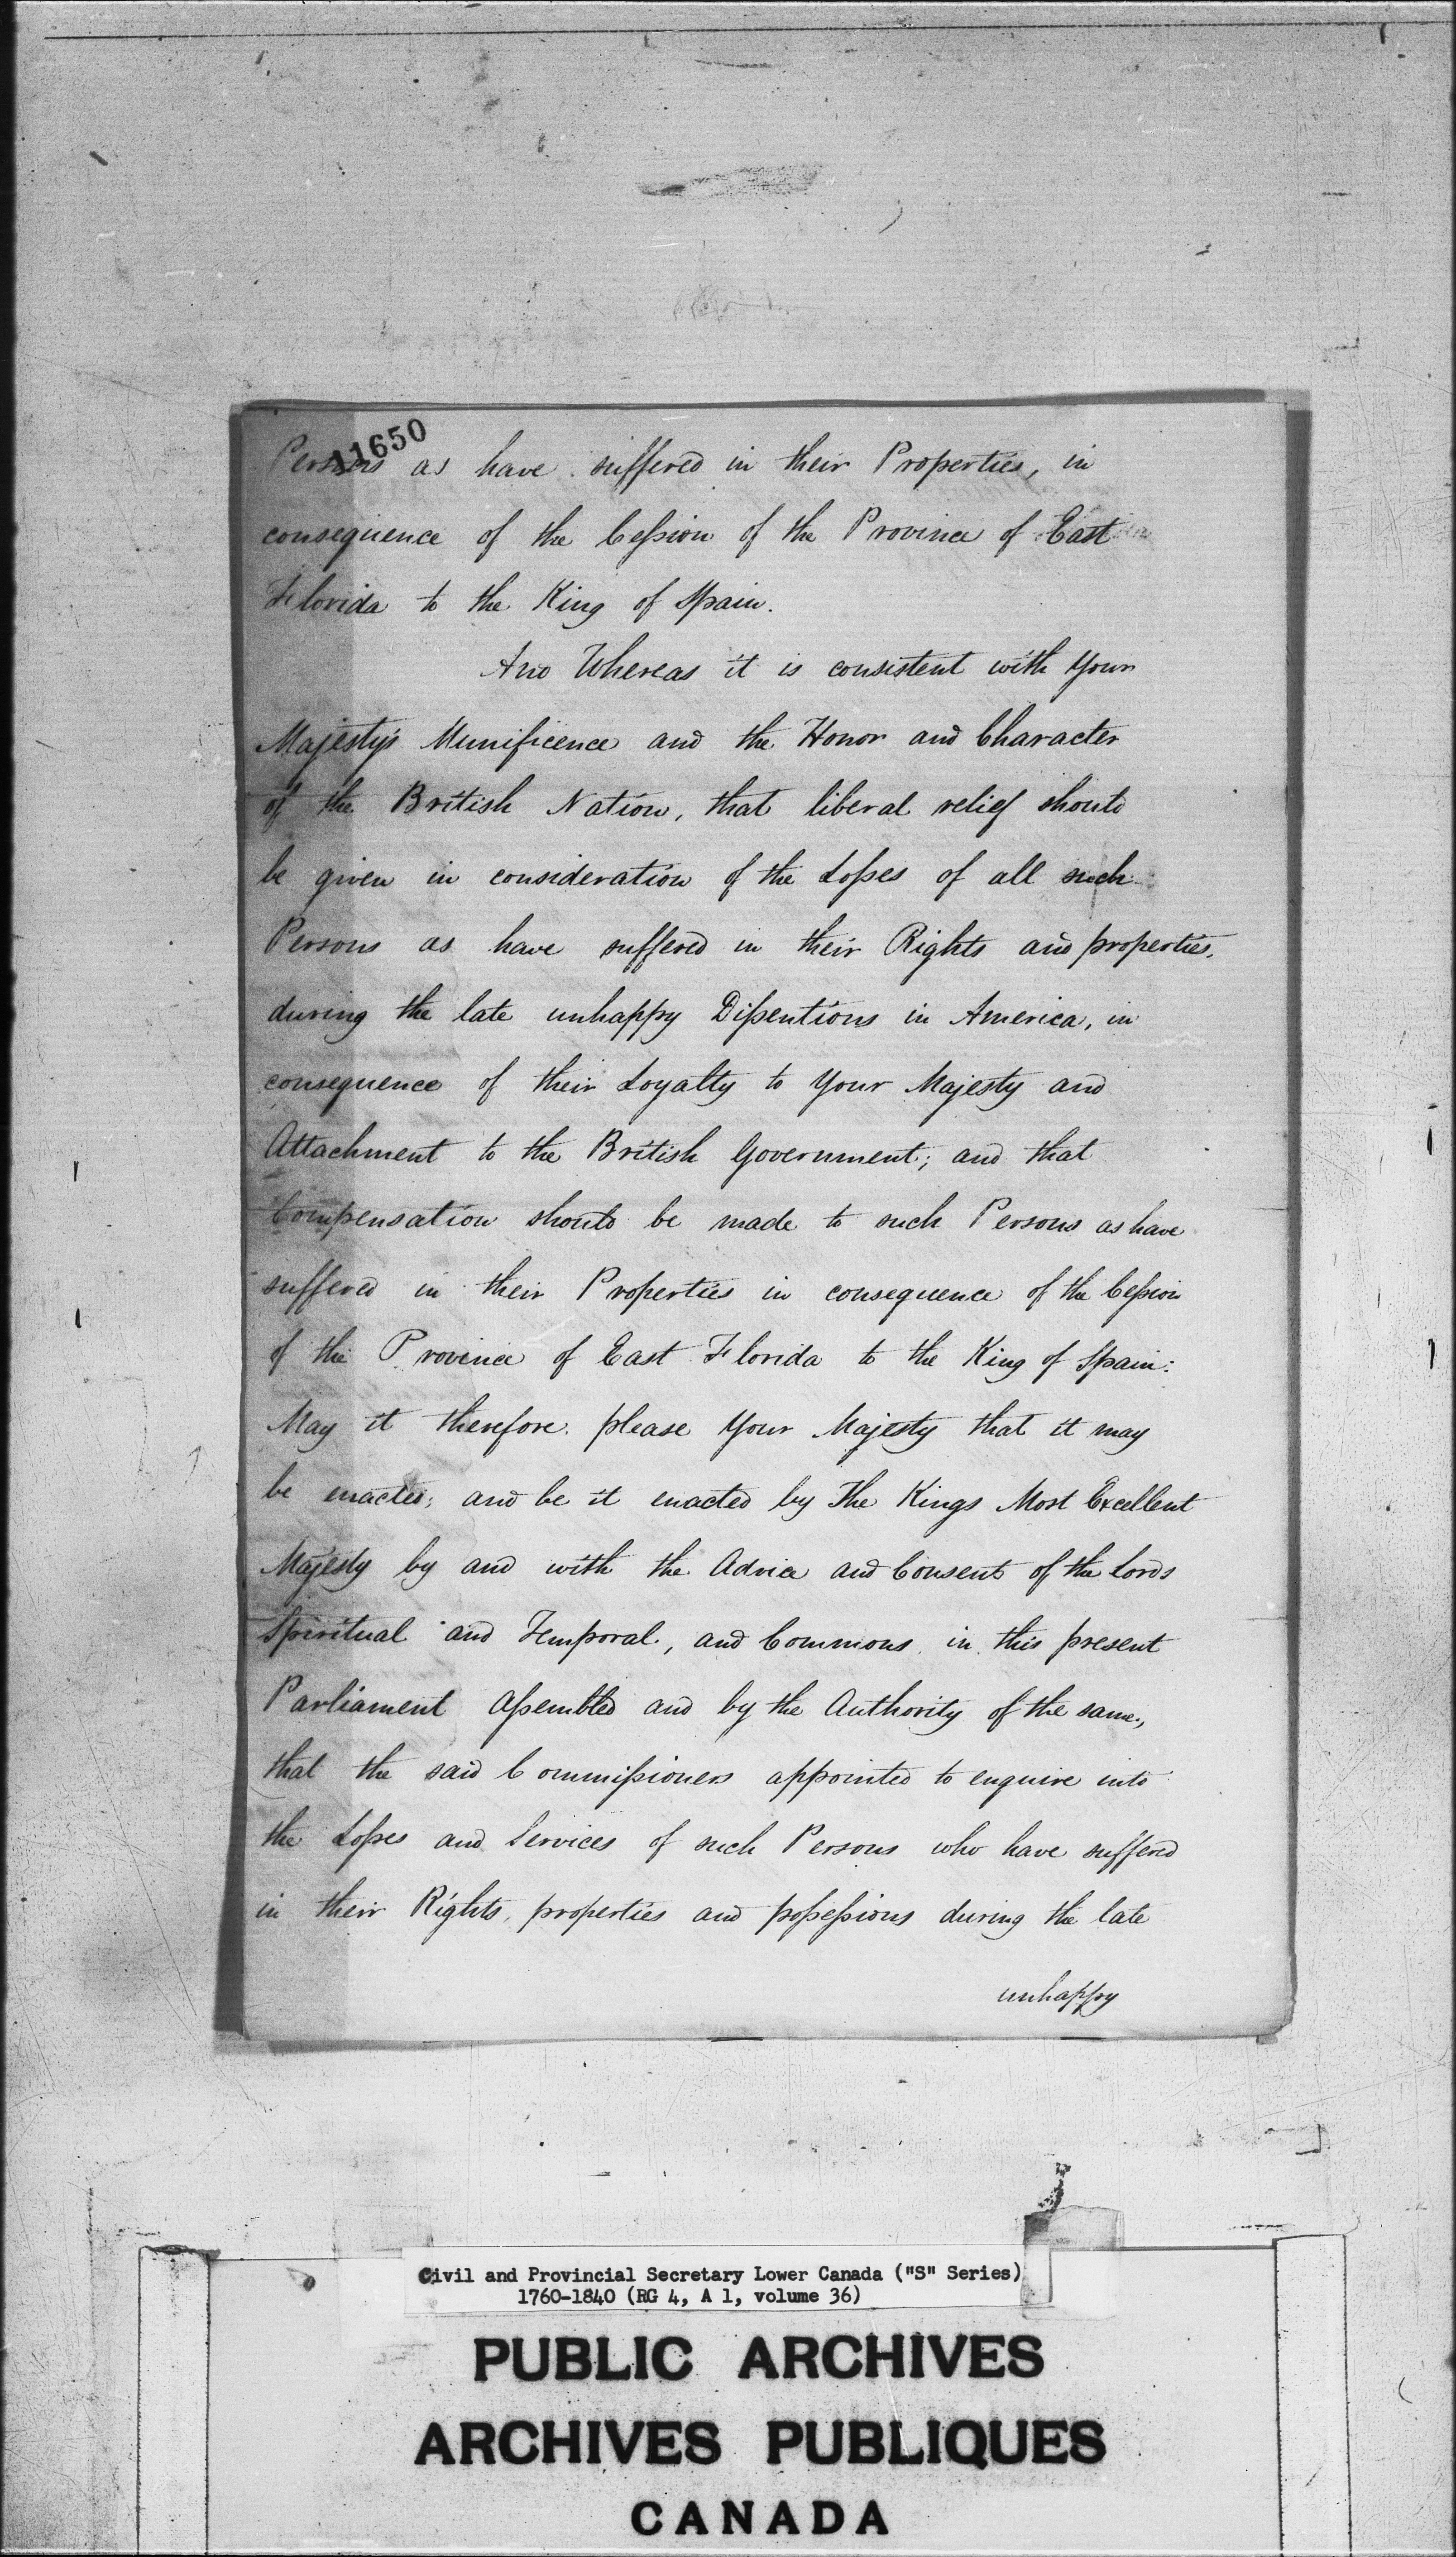 11650
Persons as have suffered in their Properties, in
consequence of the Cession of the Province of East
Florida to the King of Spain.
And Whereas it is consistent with Your
Majesty's Munificence and the Honor and Character
of the British Nation, that liberal relief should
be given in consideration of the Losses of all such
Persons as have suffered in their Rights and properties,
during the late unhappy Dissentions in America, in
consequence of their Loyalty to Your Majesty and
Attachment to the British Government; and that
Compensation should be made to such Persons as have
suffered in their Properties in consequence of the Cession
of the Province of East Florida to the King of Spain:
May it therefore please Your Majesty that it may
be enacted; and be it enacted by The Kings Most Excellent
Majesty by and with the Advice and Consent of the Lords
Spiritual and Temporal, and Commons in this present
Parliament Assembled and by the Authority of the same,
that the said Commissioners appointed to enquire into
the Losses and Services of such Persons who have suffered
in their Rights, properties and possessions during the late
unhappy
Civil and Provincial Secretary Lower Canada ("S" Series)
1760-1840 (RG 4, A 1, volume 36)
PUBLIC ARCHIVES
ARCHIVES PUBLIQUES
CANADA